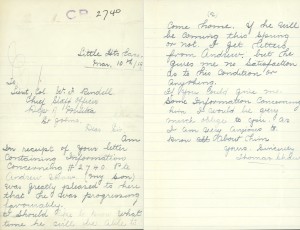 C.P. 2740
Little HtsEase,
Mar. 10th, 19
To
Lieut. Col. W. F. Rendell
Chief Staff Officer
Dept. of Militia
St Johns,
Dear Sir,
Am
In receipt of your letter
Containing Information
Concerning # 2740 Pte
Andrew Shaw (my son)
was greatly pleased to here
that he was progressing
favourably.
I should like to know what
time he will be able to
Come home. If he will
be coming this Spring
or not. I get letters
from Andrew, but he
gives me no Satisfaction
As to his Condition or
Anything.
If you could give me
Some Information Concerning
him I would be very
much oblige to you. as
I am very Anxious to
Know All About him
Yours Sincerely
Thomas Shaw